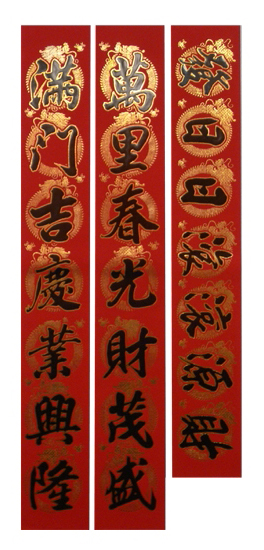 財源滾滾日日發
萬里春光財茂盛
滿门吉慶業興隆